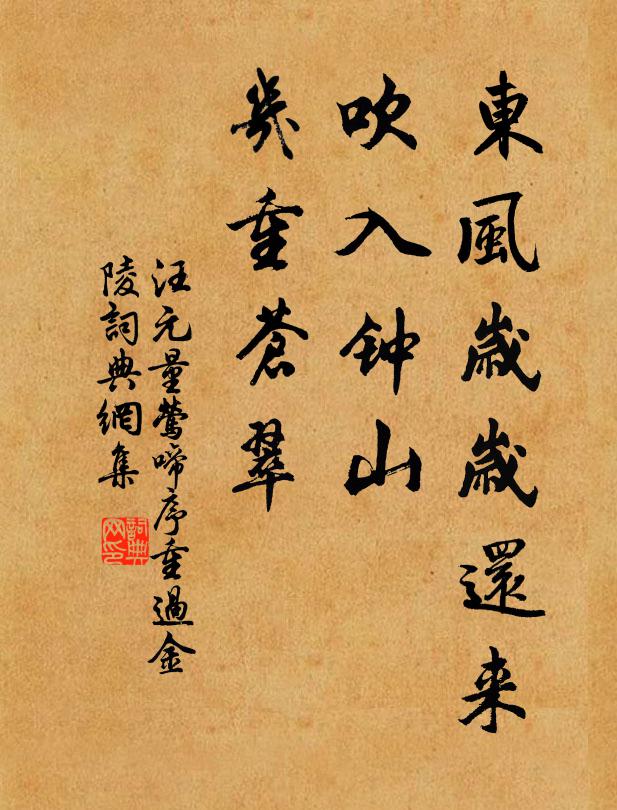 東風歲歲還来
吹入钟山
幾重蒼翠
汪元量鶯啼序重過金
陵詞典網集
詞典网印